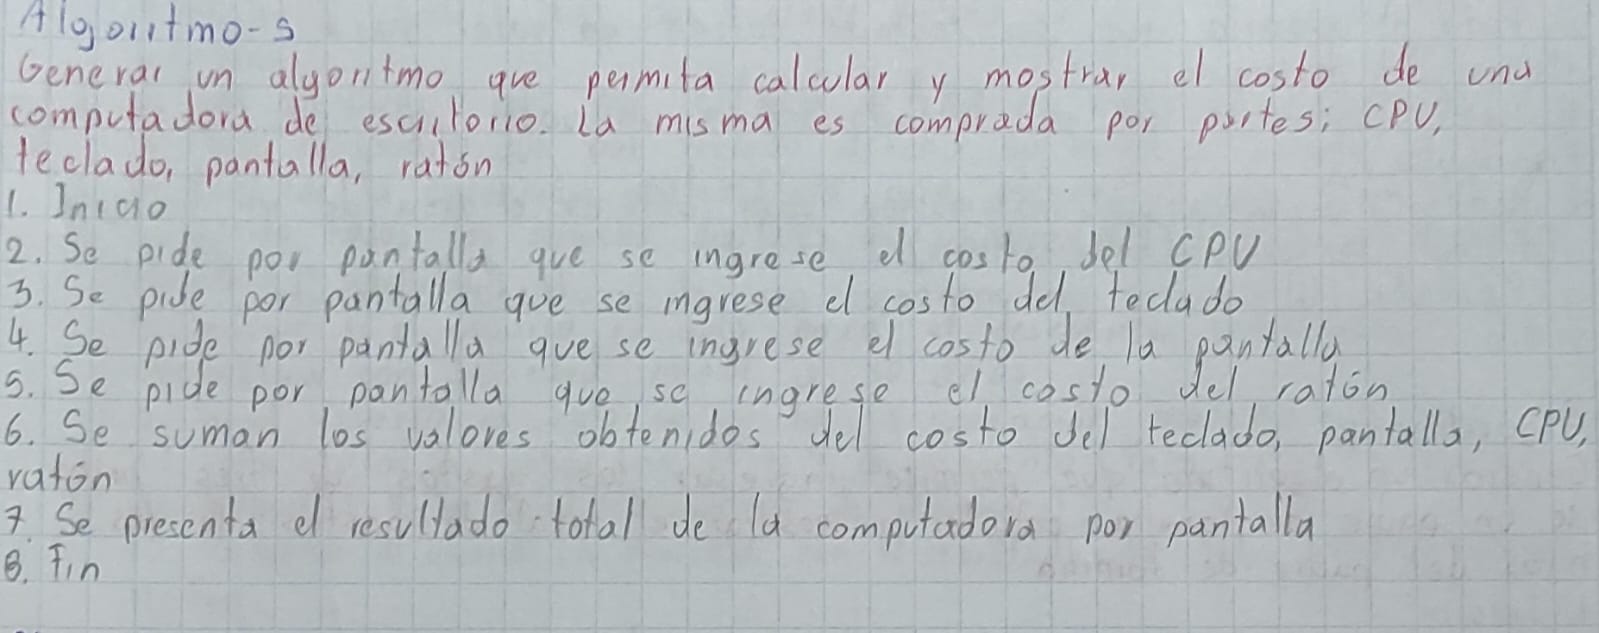 Algoritmo-s
Generar un algoritmo que permita calcular y mostrar el costo de una
computadora de escritorio. La misma es comprada por partes; CPU,
teclado, pantalla, ratón
1. Inicio
2. Se pide por pantalla que se ingrese el costo del CPU
3. Se pide por pantalla que se ingrese el costo del teclado
4. Se pide por pantalla que se ingrese el costo de la pantalla
5. Se pide por pantalla que se ingrese el costo del ratón
6. Se suman los valores obtenidos del costo del teclado, pantalla, CPU,
ratón
7. Se presenta el resultado total de la computadora por pantalla
8. Fin